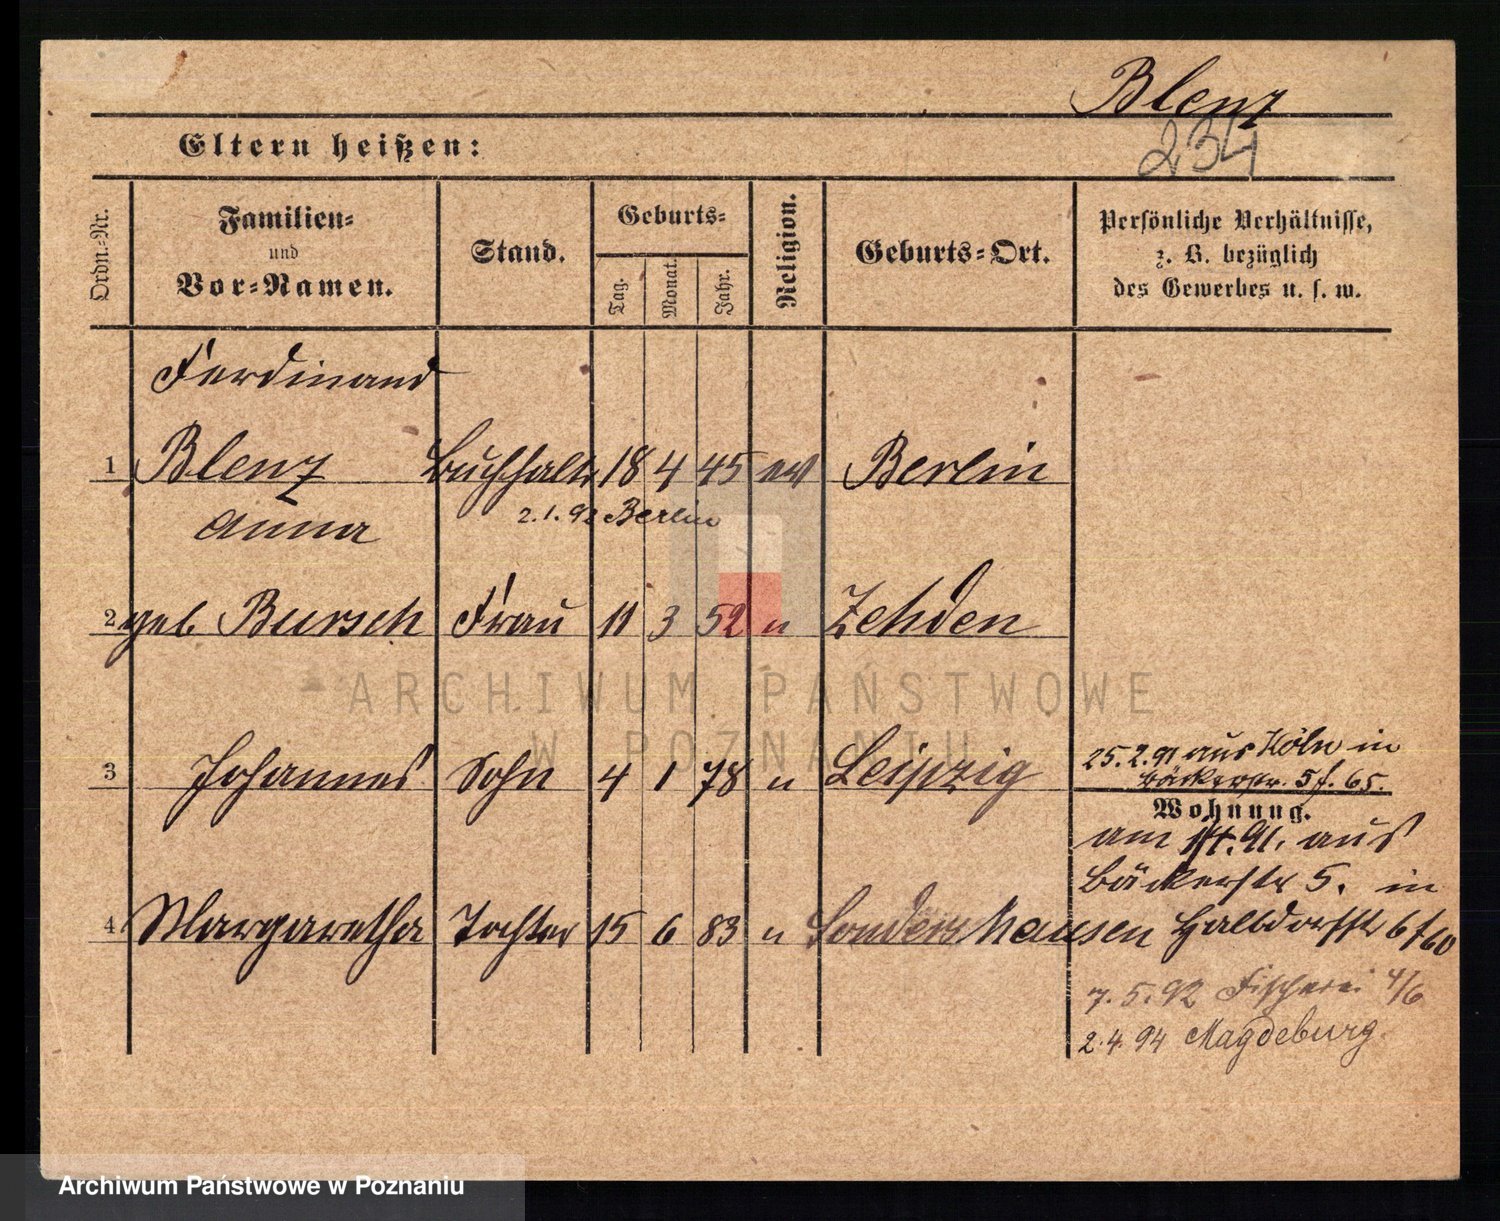 Blenz
234
Eltern heißen:
Ordn.-Nr.
Familien-
und
Vor-Namen.
Stand.
Geburts-
Tag.
Monat.
Jahr.
Religion.
Geburts-Ort.
Persönliche Verhältnisse,
z. B. bezüglich
des Gewerbes u. s. w.
Ferdinand
1 Blenz Buchhaltr 18 4 45 ev Berlin
2.1.92 Berlin
Anna
2 geb Bursch Frau 11 3 52 " Zehden
ARCHIWUM PAŃSTWOWE
W POZNANIU
3 Johannes Sohn 4 1 78 " Leipzig
25.2.91 aus Köln in
Bäckerstr. 5 f. 65.
Wohnung.
am 1.4.91. aus
Bäckerstr 5. in
4 Margaretha Tochter 15 6 83 " Sondershausen Halbdorfstr 6 f 60
7.5.92 Fischerei 4/6
2.4.94 Magdeburg
Archiwum Państwowe w Poznaniu